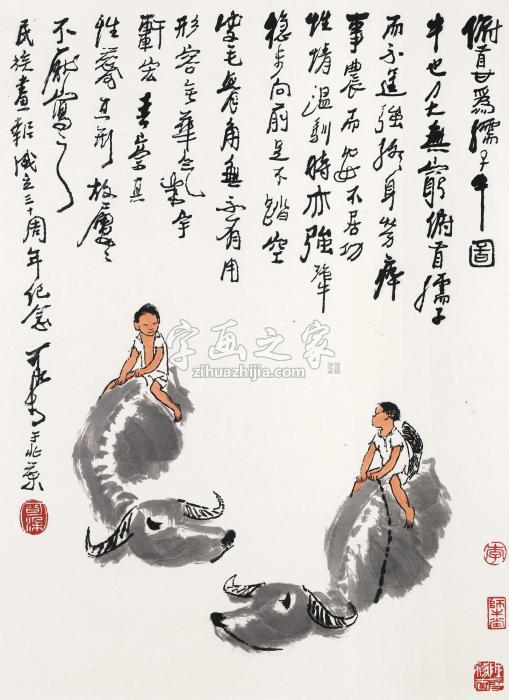 俯首甘為孺子牛圖
牛也力大無窮俯首孺子
而不逞強終身勞瘁
事農而安不居功
性情溫馴時亦強犟
穩步向前足不踏空
皮毛骨角無不有用
形容無華氣宇
軒宏吾崇其
性愛其形故屢屢
不厭寫之
民族畫報成立三十周年紀念 可染 于北京
字画之家
zihuazhijia.com
李
師牛堂